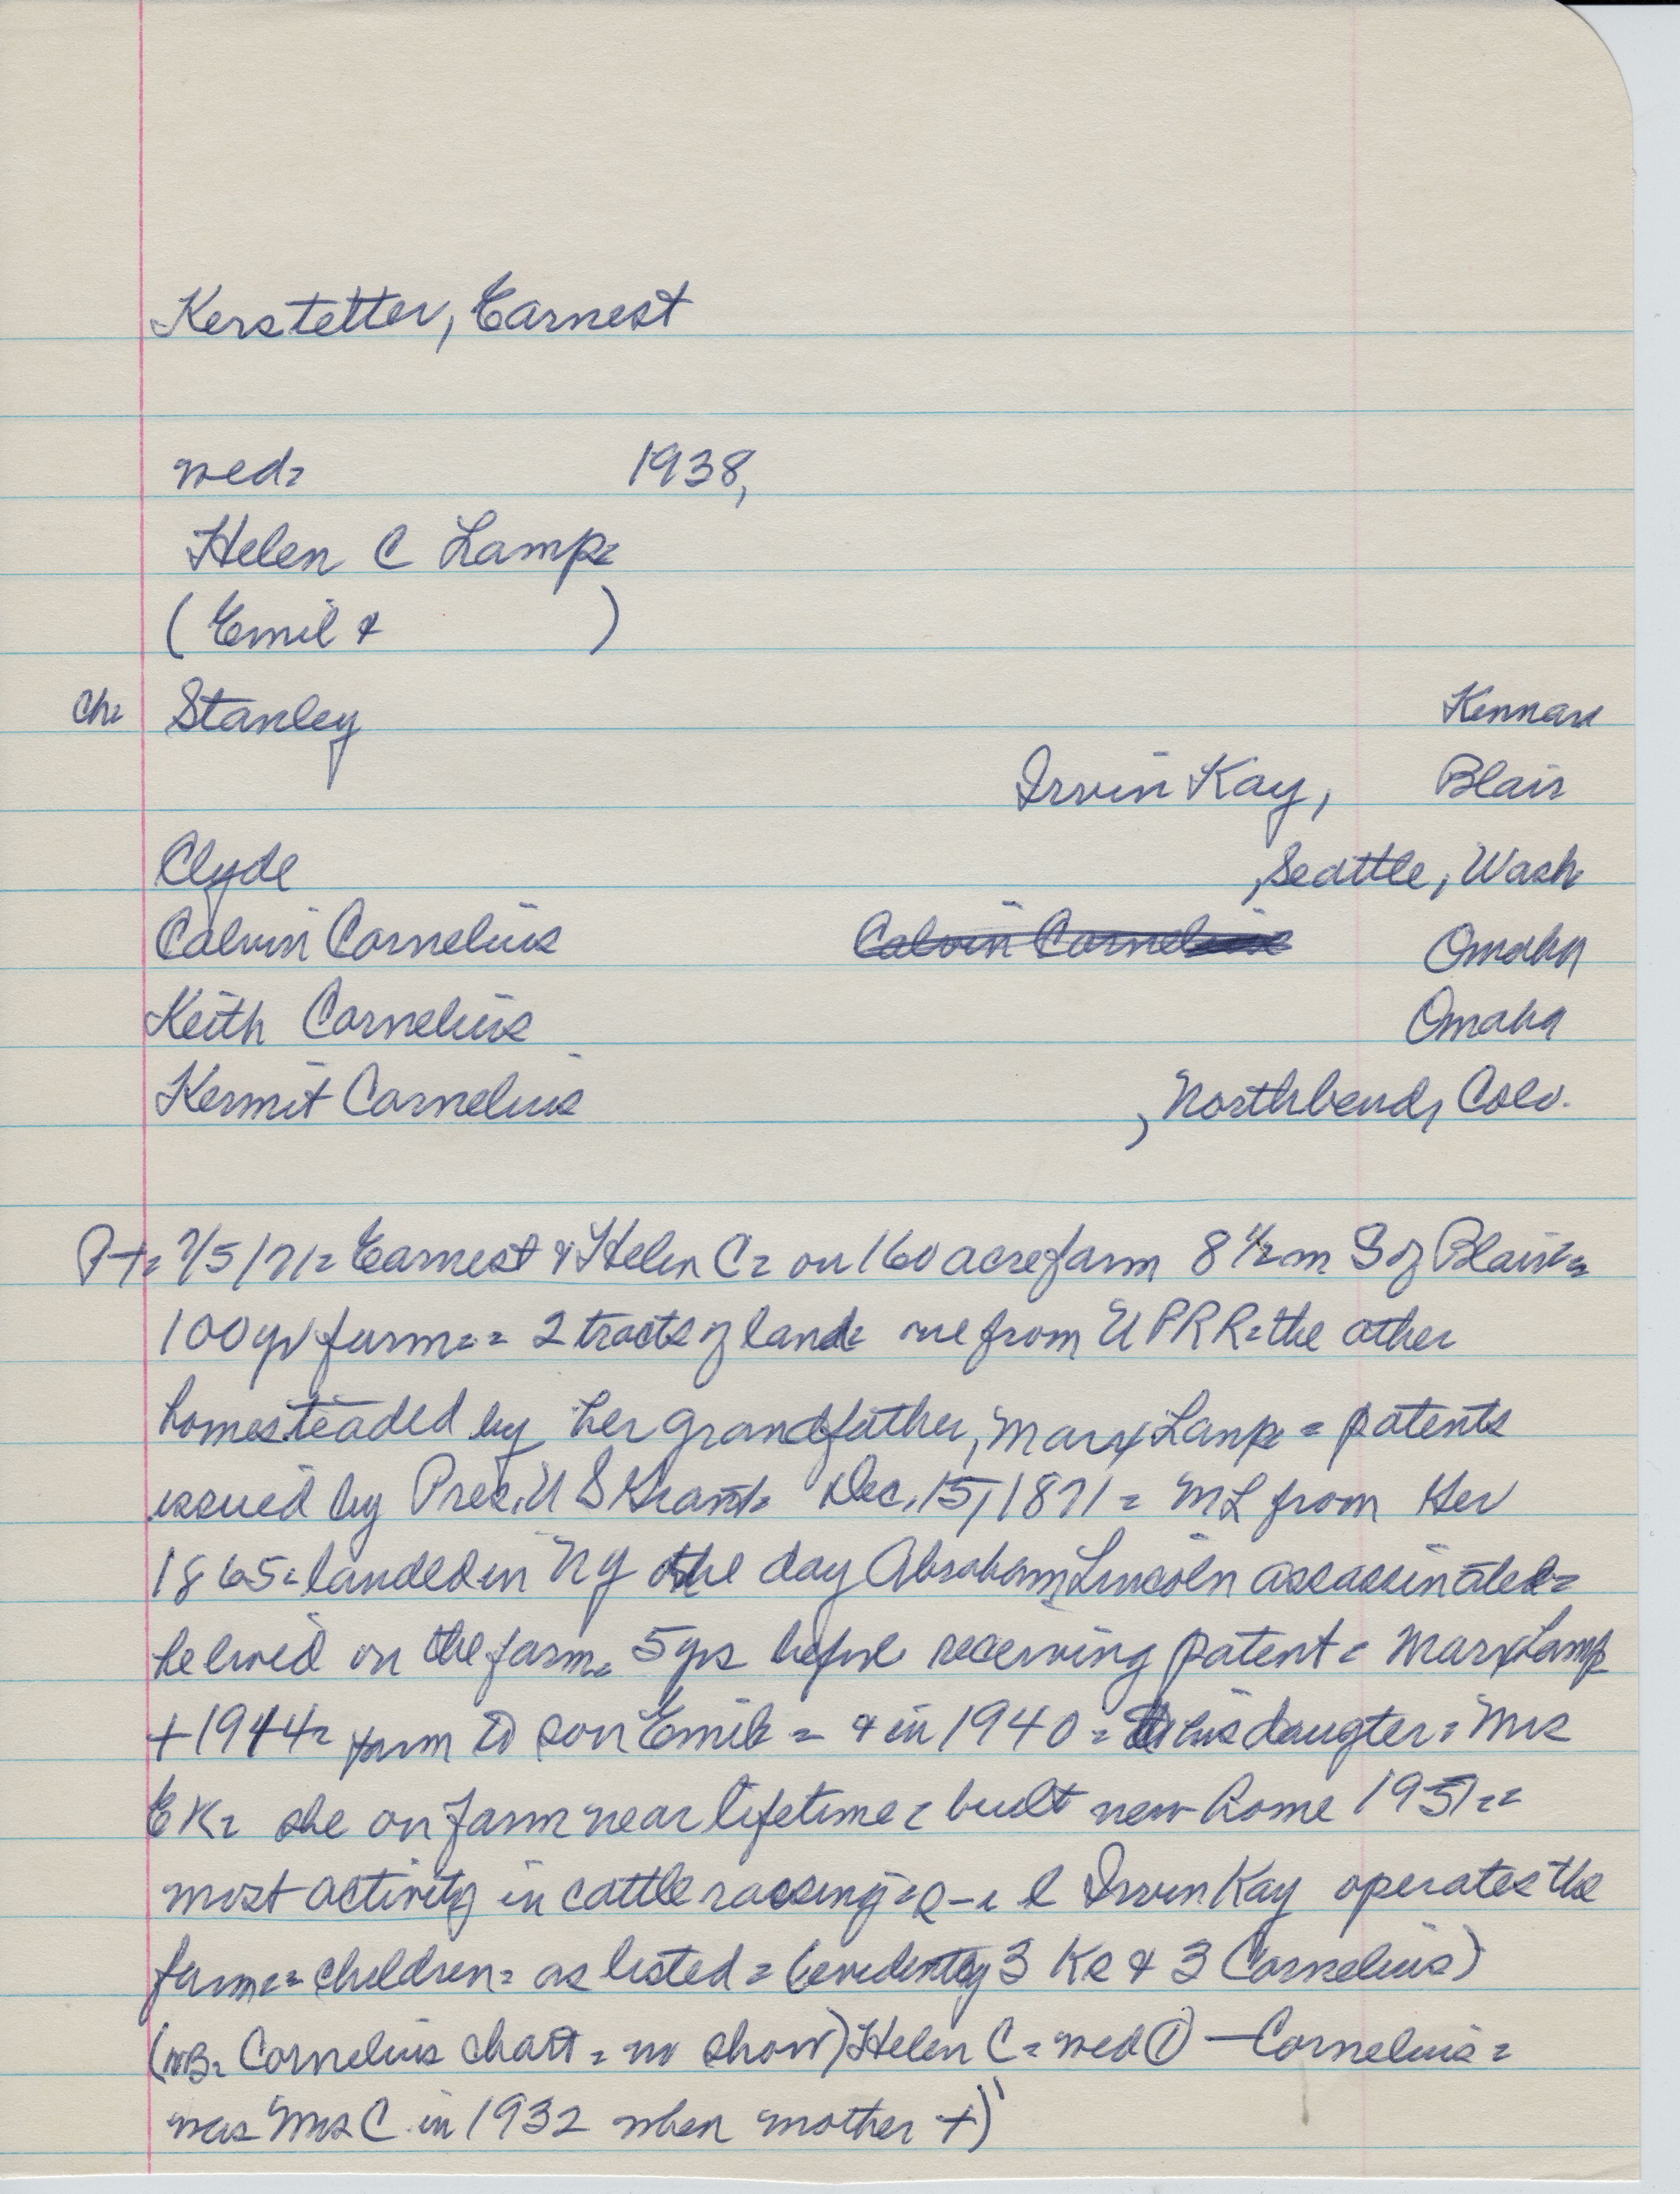 Kerstetter, Earnest
wed= 1938,
Helen C Lamp=
( Emil & )
Ch= Stanley Kennard
Irvin Kay, Blair
Clyde , Seattle, Wash
Calvin Cornelius Calvin Cornelius Omaha
Keith Cornelius Omaha
Kermit Cornelius , Northbend, Colo.
P-t= 7/5/71= Earnest & Helen C= on 160 acre farm 8 1/2 m S of Blair=
100 yr farm== 2 tracts of land= one from U P R R= the other
homesteaded by her grandfather, Marx Lamp = patents
issued by Pres. U S Grant= Dec. 15, 1871 = ML from Ger
1865= landed in NY the day Abraham Lincoln assassinated=
he lived on the farm= 5 yrs before receiving patent = Marx Lamp
+ 1944= farm to son Emil = & in 1940 = to his daugter = Mrs
E K= she on farm near lifetime = built new home 1951==
most activity in cattle raising = Irvin Kay operates the
farm== children= as listed = (evidently 3 Ks & 3 Cornelius)
(NB= Cornelius chart = no show) Helen C = wed ① — Cornelius =
was Mrs C in 1932 when mother +)